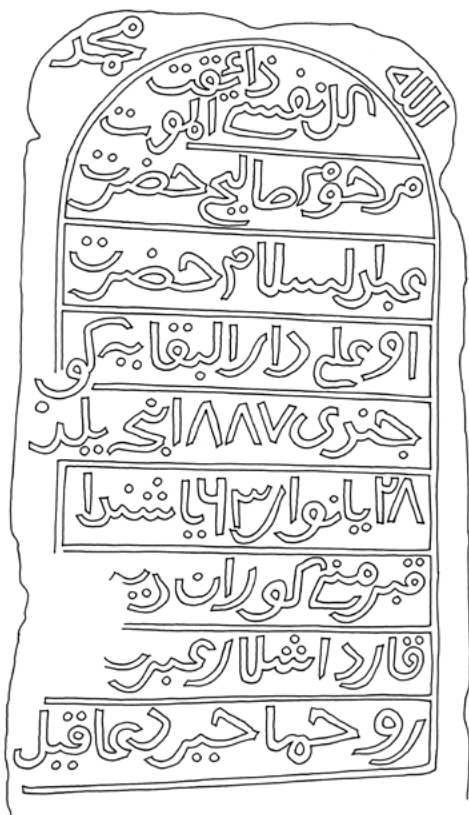 الله محمد
كل نفس ذائقت الموت
مرحوم صاليح حضرت
عبدلسلام حضرت
اوعلي دار البقايه كو
جتري ١٨٨٧ انجي
٢٨ يانوار ٦٣ ياشندا
قبرمني كوران ديب
قارداشلار عبر
روحما خير دعا قيل